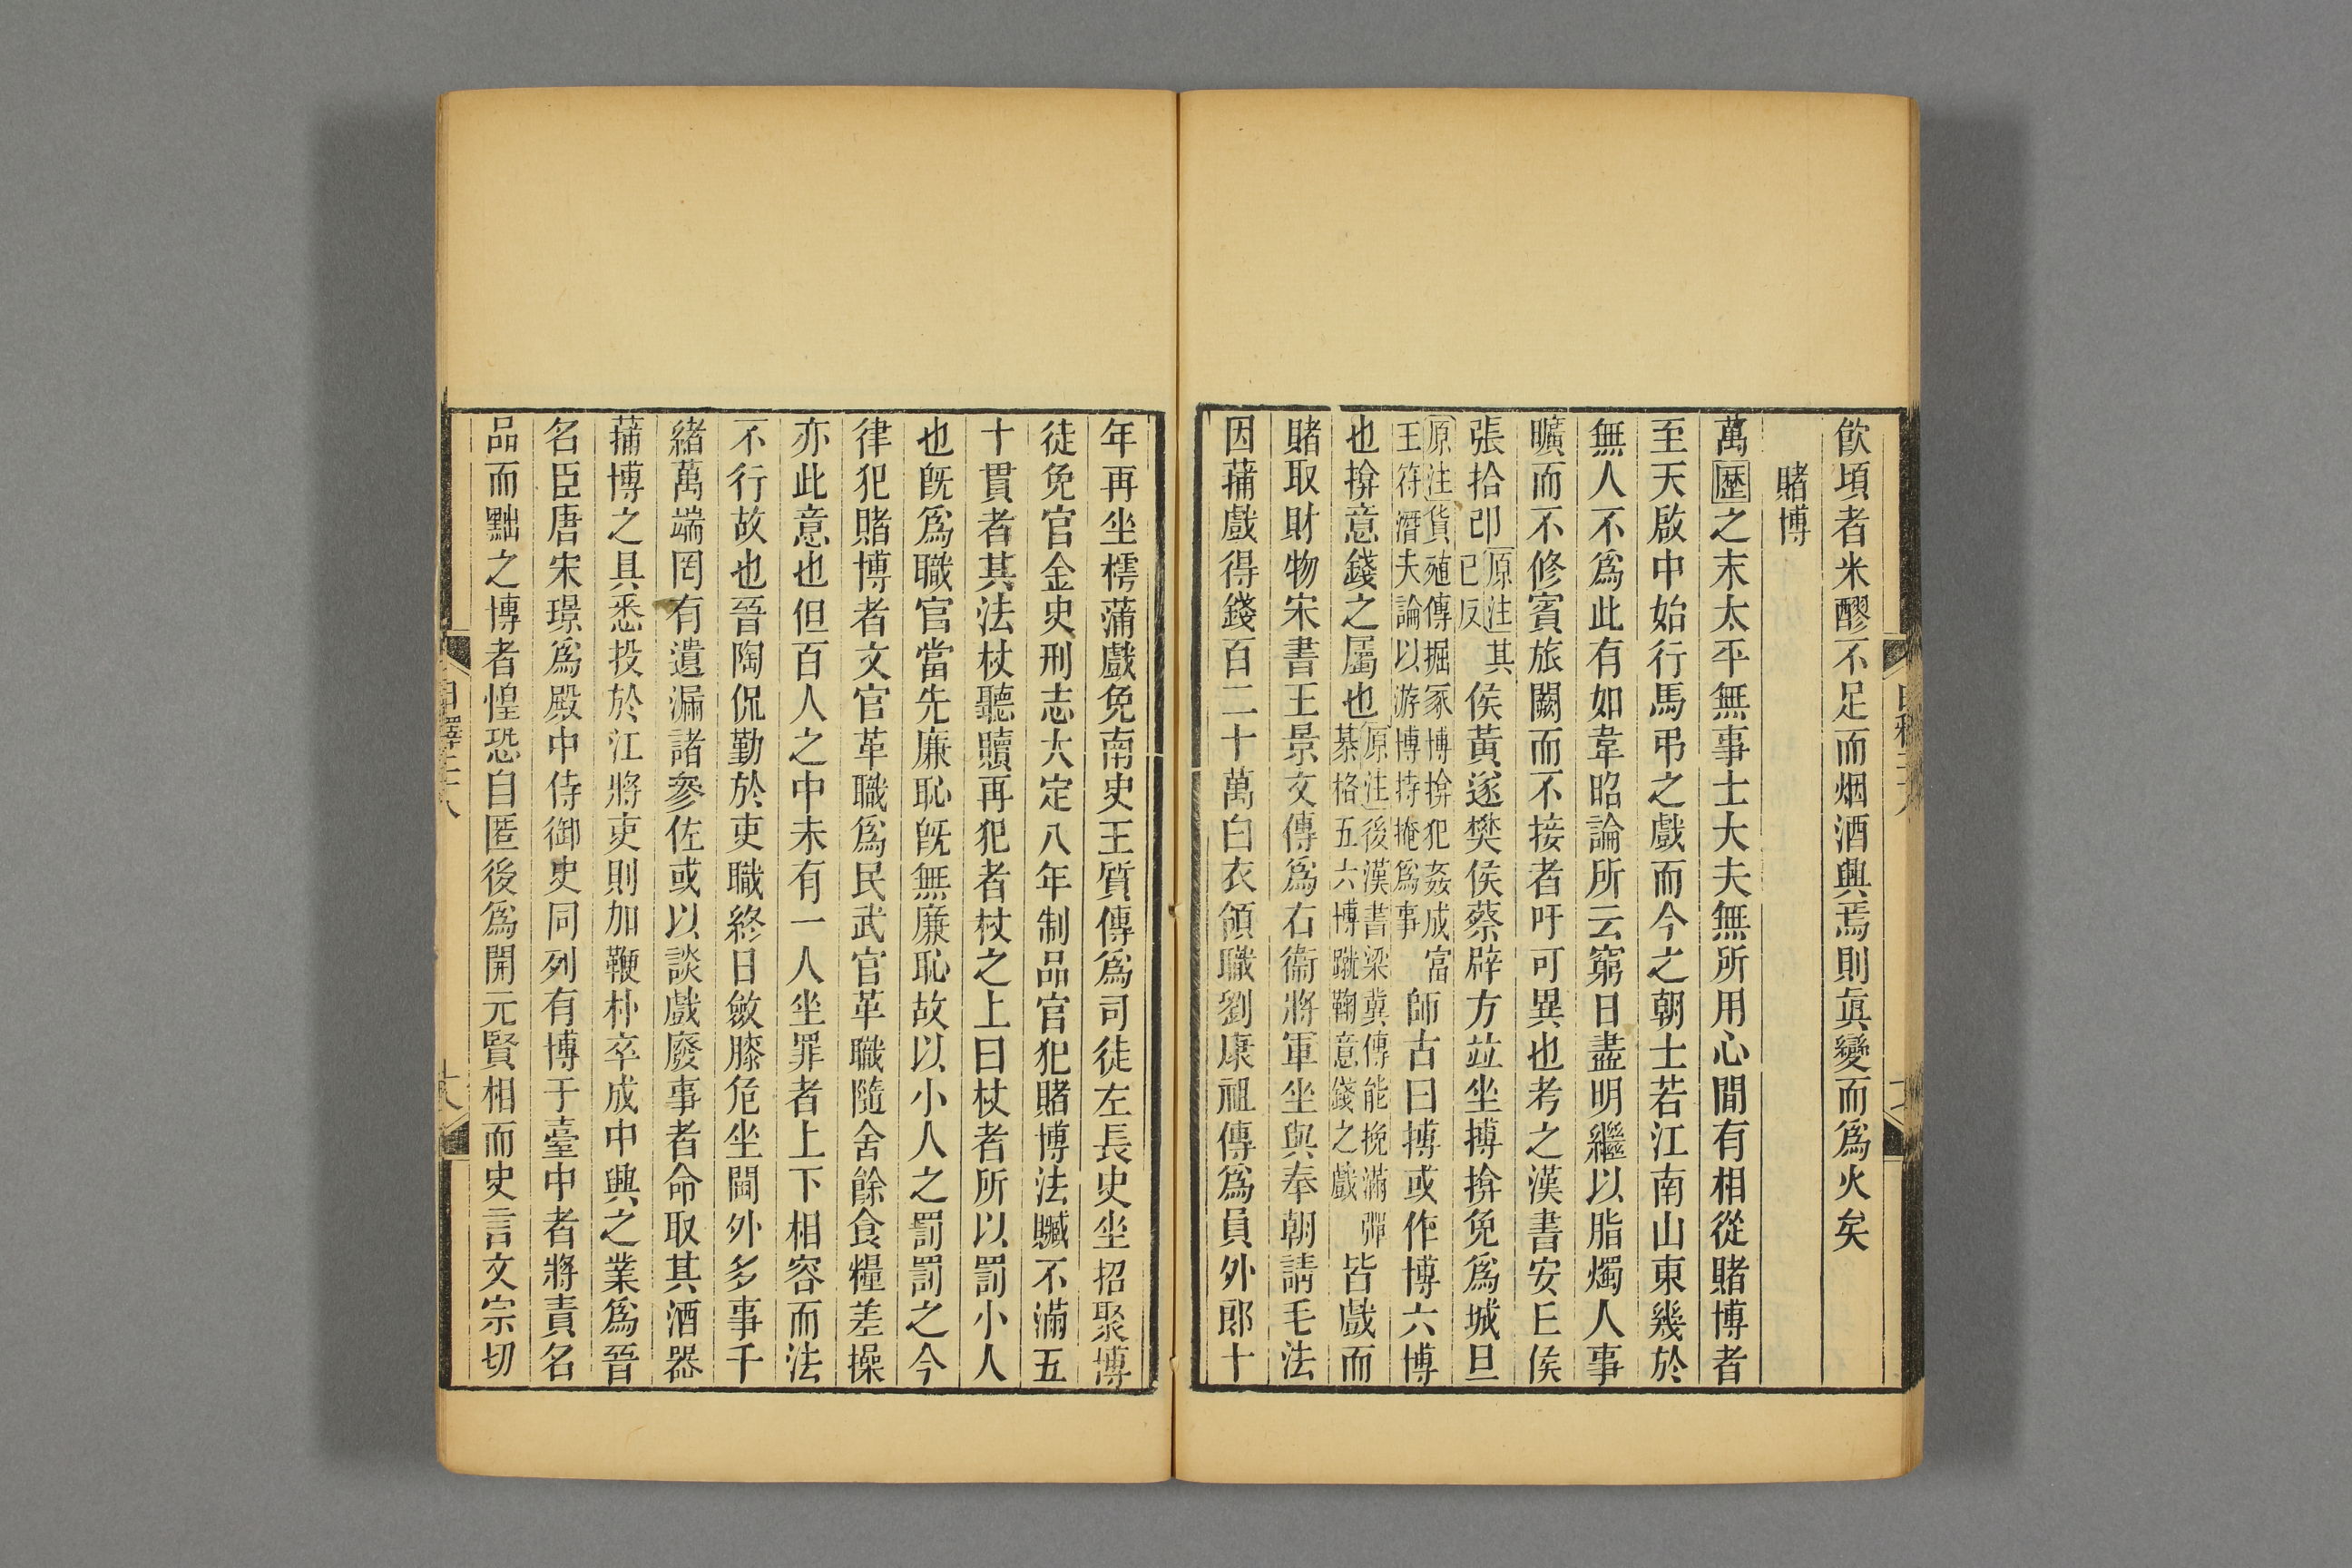 飲頃者米醪不足而烟酒興焉則眞變而爲火矣
賭博
萬歷之末太平無事士大夫無所用心間有相從賭博者
至天啟中始行馬弔之戲而今之朝士若江南山東幾於
無人不爲此有如韋昭論所云窮日盡明繼以脂燭人事
曠而不修賓旅闕而不接者吁可異也考之漢書安王侯
張拾卽原注其已反侯黃遂樊侯蔡辟方竝坐搏揜免爲城旦
原注貨殖傳掘冢博揜犯姦成富王符潛夫論以游博持掩爲事師古曰搏或作博六博
也揜意錢之屬也原注後漢書梁冀傳能挽滿彈棊格五六博蹴鞠意錢之戲皆戲而
賭取財物宋書王景文傳爲右衞將軍坐與奉朝請毛法
因蒱戲得錢百二十萬白衣領職劉康祖傳爲員外郎十
年再坐樗蒲戲免南史王質傳爲司徒左長史坐招聚博
徒免官金史刑志大定八年制品官犯賭博法贓不滿五
十貫者其法杖聽贖再犯者杖之上曰杖者所以罰小人
也旣爲職官當先廉恥旣無廉恥故以小人之罰罰之今
律犯賭博者文官革職爲民武官革職隨舍餘食糧差操
亦此意也但百人之中未有一人坐罪者上下相容而法
不行故也晉陶侃勤於吏職終日斂膝危坐閫外多事千
緒萬端罔有遺漏諸參佐或以談戲廢事者命取其酒器
蒱博之具悉投於江將吏則加鞭朴卒成中興之業爲晉
名臣唐宋璟爲殿中侍御史同列有博于臺中者將責名
品而黜之博者惶恐自匿後爲開元賢相而史言文宗切